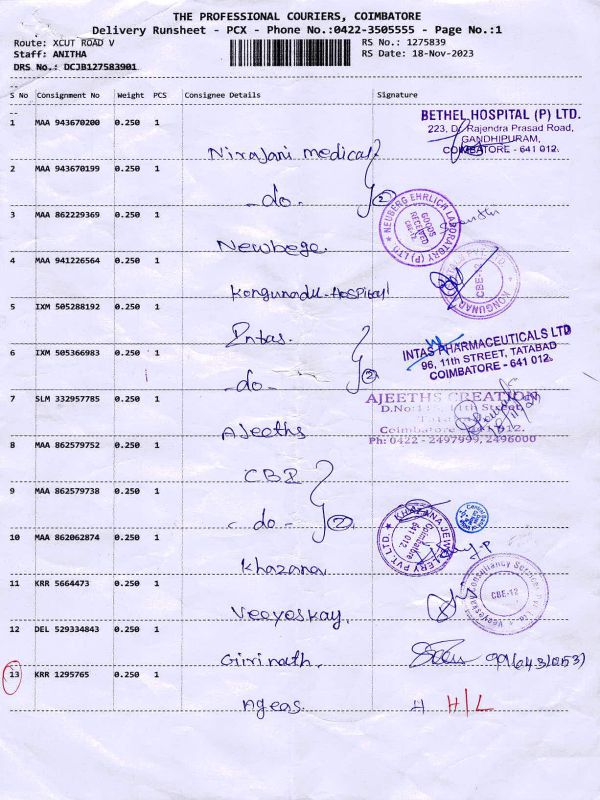 THE PROFESSIONAL COURIERS, COIMBATORE
Delivery Runsheet - PCX - Phone No.:0422-3505555 - Page No.:1
Route: XCUT ROAD V
RS No.: 1275839
Staff: ANITHA
RS Date: 18-Nov-2023
DRS No.: DCJB127583901
S No Consignment No Weight PCS Consignee Details Signature
1 MAA 943670200 0.250 1
BETHEL HOSPITAL (P) LTD.
223, Dr. Rajendra Prasad Road,
GANDHIPURAM,
COIMBATORE - 641 012.
Nirajani medical
2 MAA 943670199 0.250 1
-do- 2
3 MAA 862229369 0.250 1
NEUBERG EHRLICH LABORATORY (P) LTD.
GOODS RECEIVED
CBE-12
Newbege
4 MAA 941226564 0.250 1
CBE-12
Kongunadu-Hospital
5 IXM 505288192 0.250 1
Intas.
INTAS PHARMACEUTICALS LTD
96, 11th STREET, TATABAD
COIMBATORE - 641 012.
6 IXM 505366983 0.250 1
-do- 2
7 SLM 332957785 0.250 1
AJEETHS CREATION
D.No: 11th Street,
Coimbatore 641 012.
Ph: 0422 - 2497999, 2496000
Ajeeths
8 MAA 862579752 0.250 1
CBI
9 MAA 862579738 0.250 1
-do- 2
10 MAA 862062874 0.250 1
KHAZANA JEWELLERY PVT. LTD.
Coimbatore
641 012
Khazana
11 KRR 5664473 0.250 1
Veeyeskay Consultancy Services Pvt. Ltd.
CBE-12
Veeyeskay
12 DEL 529334843 0.250 1
Girinath.
13 KRR 1295765 0.250 1
Ageas. H H/L